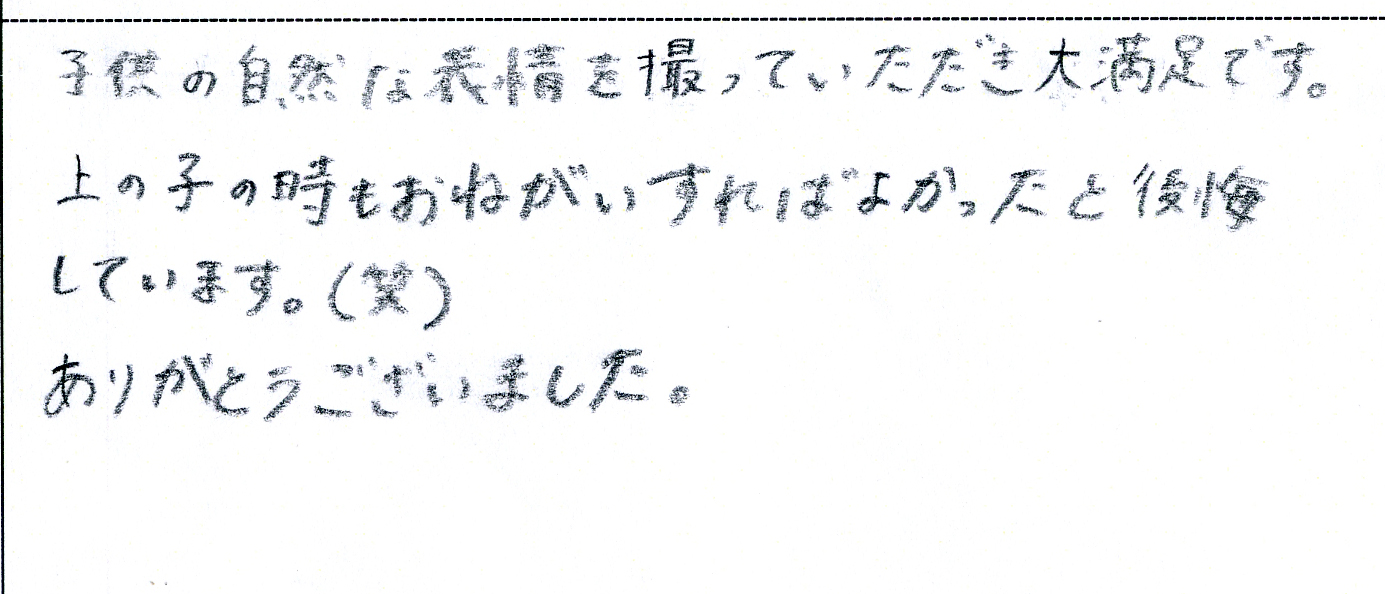 子供の自然な表情を撮っていただき大満足です。
上の子の時もおねがいすればよかったと後悔
しています。(笑)
ありがとうございました。